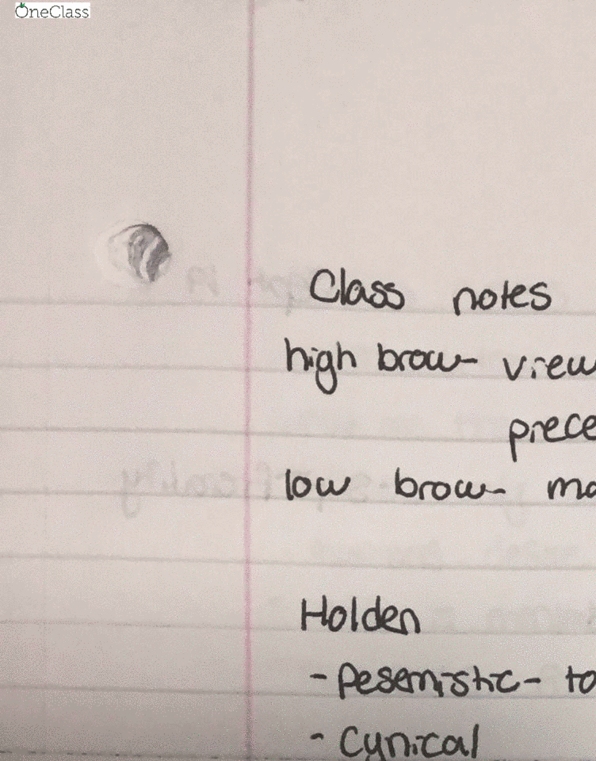 OneClass
Class notes
high brow- view
prece
low brow- mo
Holden
- pesemistic- to
- Cynical